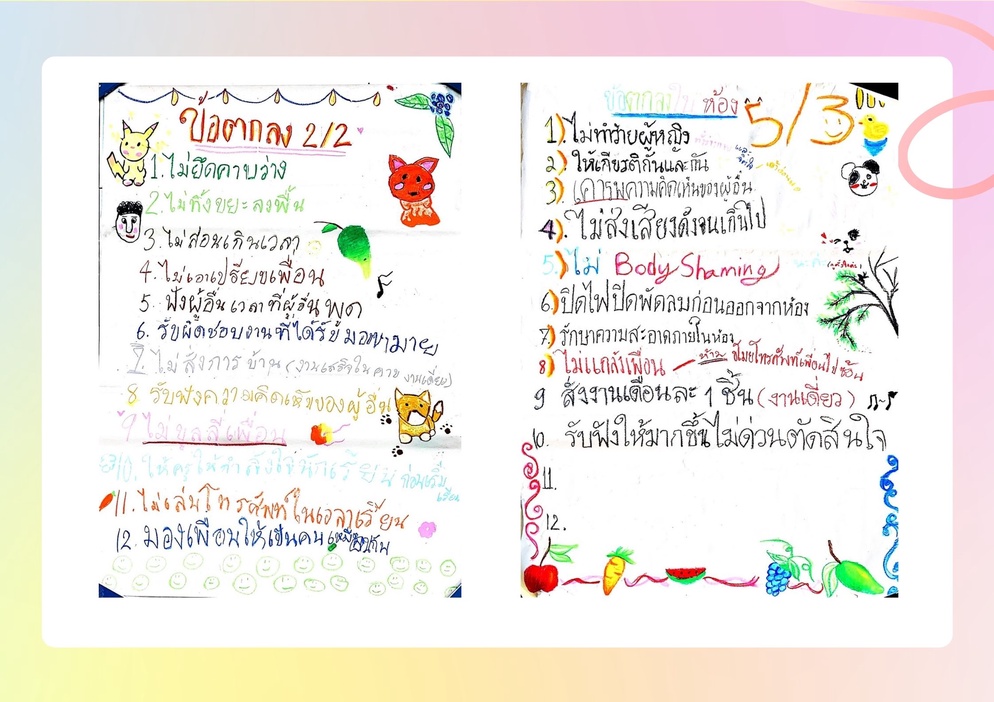 ข้อตกลง 2/2
1. ไม่ยึดคาบว่าง
2. ไม่ทิ้งขยะลงพื้น
3. ไม่สอนเกินเวลา
4. ไม่เอาเปรียบเพื่อน
5. ฟังผู้อื่นเวลาที่ผู้อื่นพูด
6. รับผิดชอบงานที่ได้รับมอบหมาย
7. ไม่สั่งการบ้าน (งานเสร็จในคาบ งานเดี่ยว)
8 รับฟังความคิดเห็นของผู้อื่น
9 ไม่บูลลี่เพื่อน
10. ให้ครูให้กำลังใจนักเรียน ก่อนเริ่มเรียน
11. ไม่เล่นโทรศัพท์ในเวลาเรียน
12. มองเพื่อนให้เป็นคนเหมือนกัน
ข้อตกลงใน ห้อง 5/3
1) ไม่ทำร้ายผู้หญิง
2) ให้เกียรติกันและกัน
3) เคารพความคิดเห็นของผู้อื่น
4). ไม่ส่งเสียงดังจนเกินไป
5.) ไม่ Body Shaming
6) ปิดไฟปิดพัดลมก่อนออกจากห้อง
7) รักษาความสะอาดภายในห้อง
8) ไม่แกล้งเพื่อน ห้าม ขโมยโทรศัพท์เพื่อนไปซ่อน
9 สั่งงานเดือนละ 1 ชิ้น (งานเดี่ยว)
10. รับฟังให้มากขึ้นไม่ด่วนตัดสินใจ
11.
12.